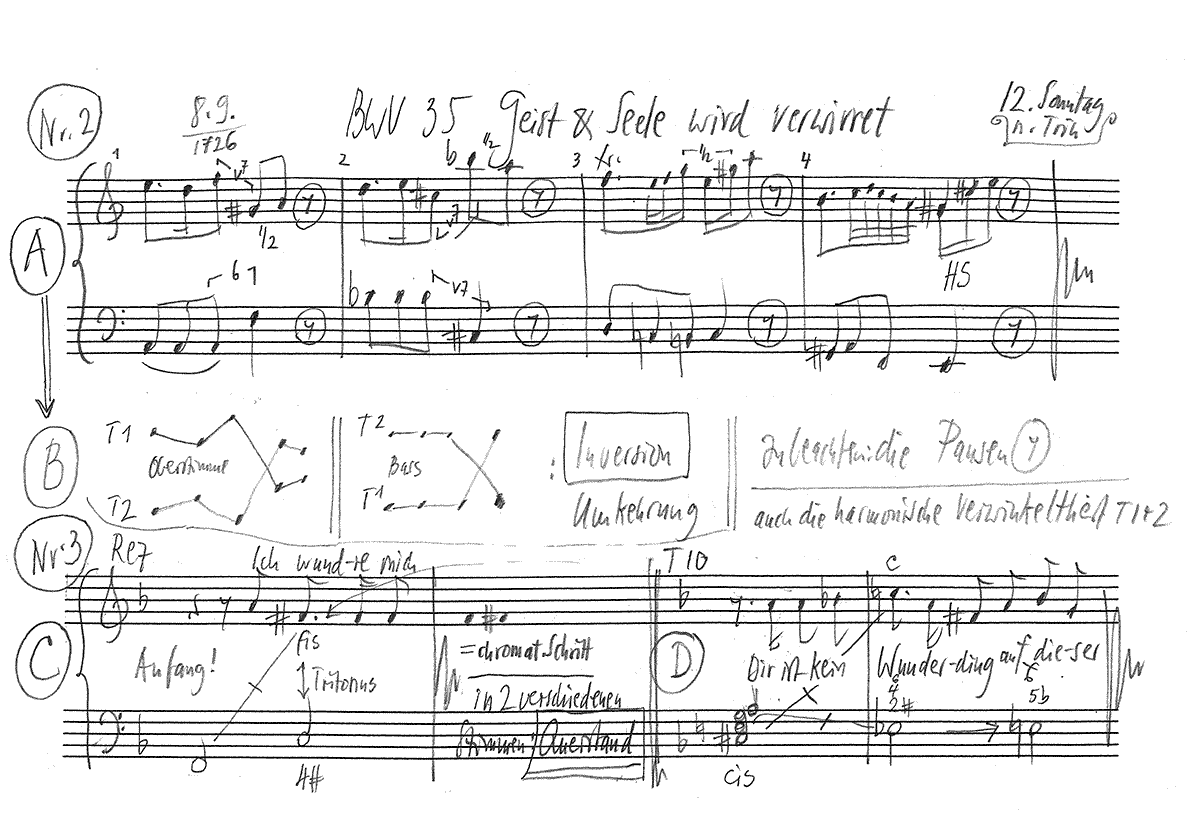 Nr. 2
8.9.
1726
BWV 35 Geist & Seele wird verwirret
12. Sonntag
n. Trin
1 2 3 4
b 1/2
tr.
1/2
v7
1/2
v7
HS
A
67
v7
B
T1
Oberstimme
T2
T2
Bass
T1
: Inversion
Umkehrung
zu beachten: die Pausen
auch die harmonische Verwinkeltheit T1+2
Nr. 3
Rez
Ich wund-re mich
T10
C
C
Anfang!
fis
Tritonus
4#
= chromat Schritt
in 2 verschiedenen
Stimmen: Querstand
D
Dir ist kein Wunder-ding auf die-ser
6
4
2#
6
5b
cis